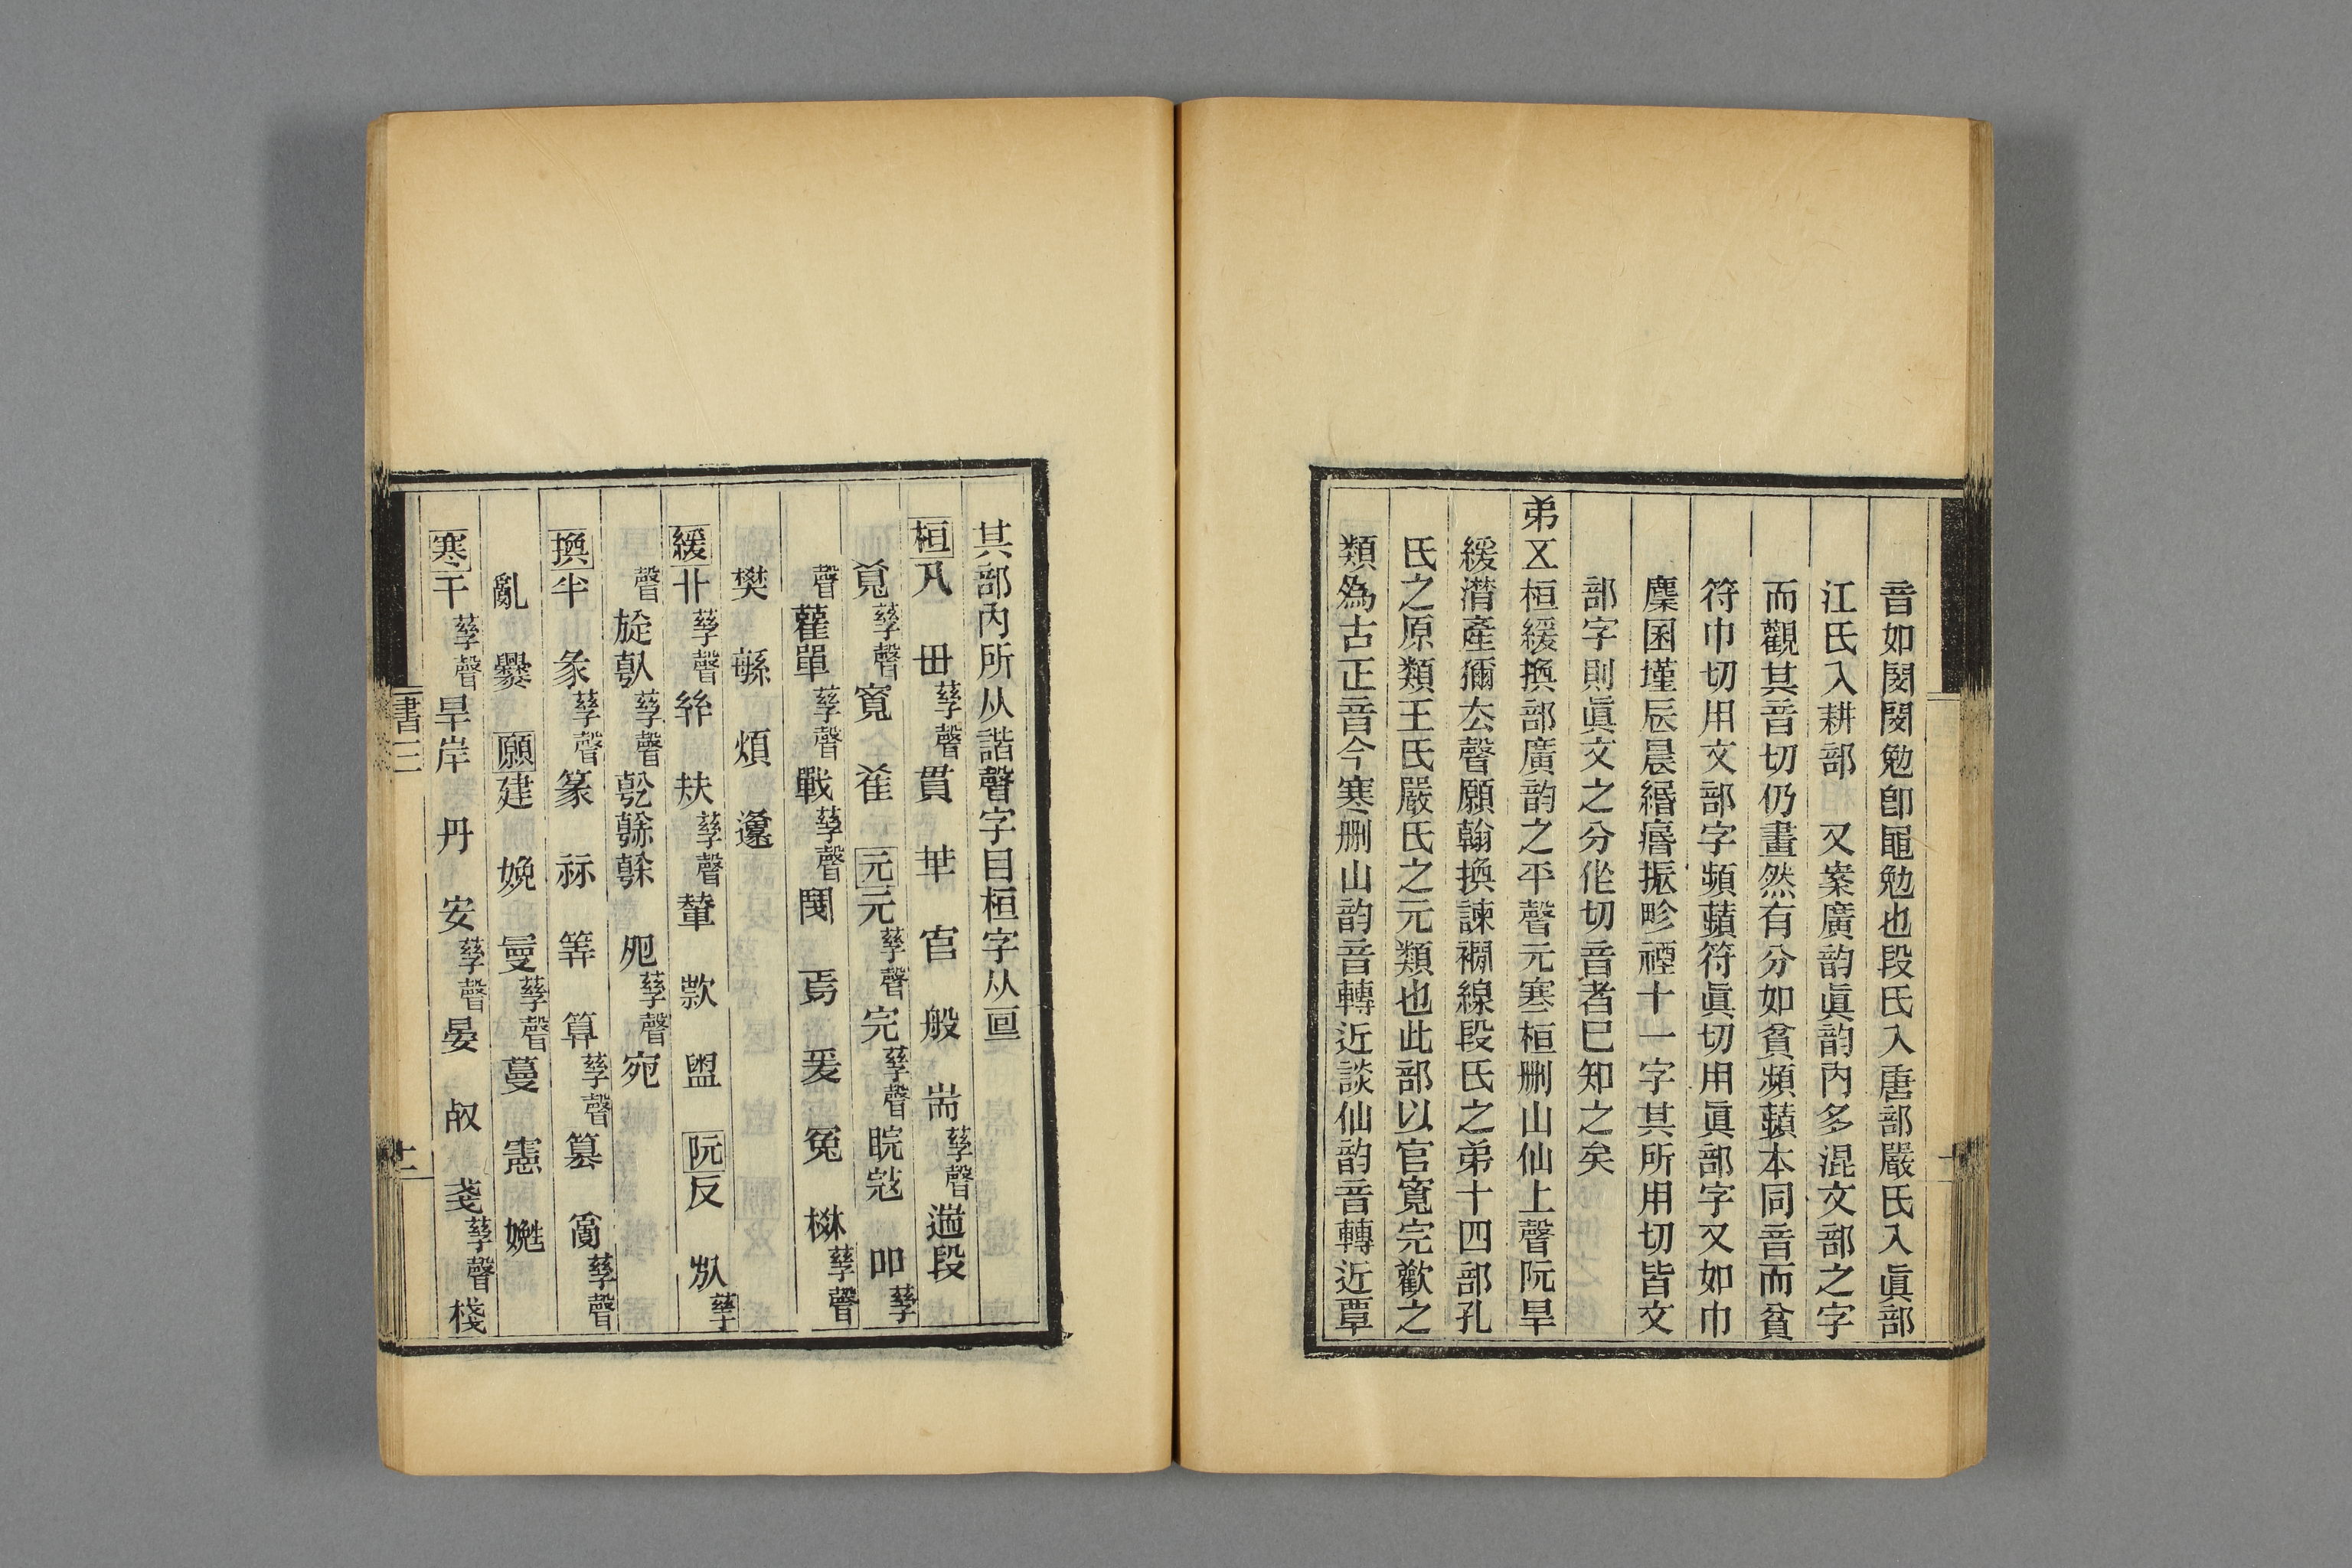 音如閔閔勉卽黽勉也段氏入唐部嚴氏入眞部
江氏入耕部 又案廣韵眞韵內多混文部之字
而觀其音切仍畫然有分如貧頻蘋本同音而貧
符巾切用文部字頻蘋符眞切用眞部字又如巾
麇囷墐辰晨緡㾕振畛禋十一字其所用切皆文
部字則眞文之分作切音者已知之矣
弟㐅桓緩換部廣韵之平聲元寒桓刪山仙上聲阮旱
緩潸產獮厺聲願翰換諫襉線段氏之弟十四部孔
氏之原類王氏嚴氏之元類也此部以官寬完歡之
類爲古正音今寒刪山韵音轉近談仙韵音轉近覃
其部內所从諧聲字目桓字从亘
桓 毌孳聲貫 𠦒 官 般 耑孳聲遄段
萈孳聲寬 雈 元元孳聲完孳聲睆𡨥 吅孳
聲雚單孳聲戰孳聲閿 焉 爰 冤 𣏟孳聲
樊 緐 煩 邍
緩卝孳聲𢇇 㚘孳聲輦 款 盥 阮反 㫃孳
聲旋倝孳聲乾榦 夗孳聲宛
換半 彖孳聲篆 祘 筭 算孳聲篡 𤔔孳聲
亂 爨 願建 㝃 曼孳聲蔓 憲
寒干孳聲旱岸 丹 安孳聲晏 𣦼 戔孳聲棧
書三